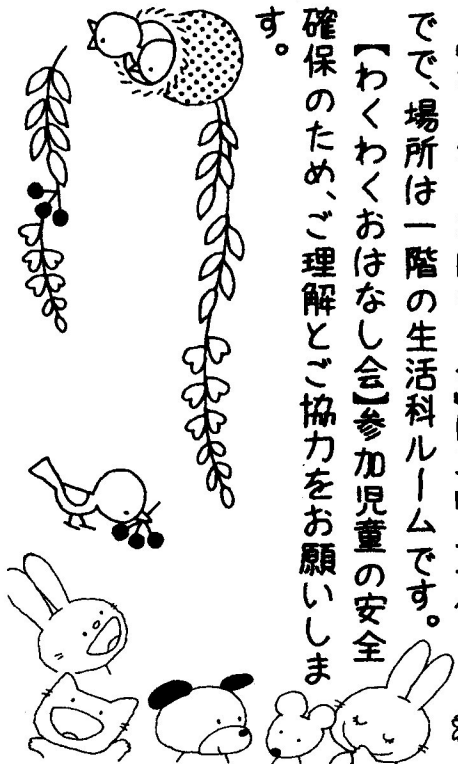 でで、場所は一階の生活科ルームです。
【わくわくおはなし会】参加児童の安全
確保のため、ご理解とご協力をお願いしま
す。